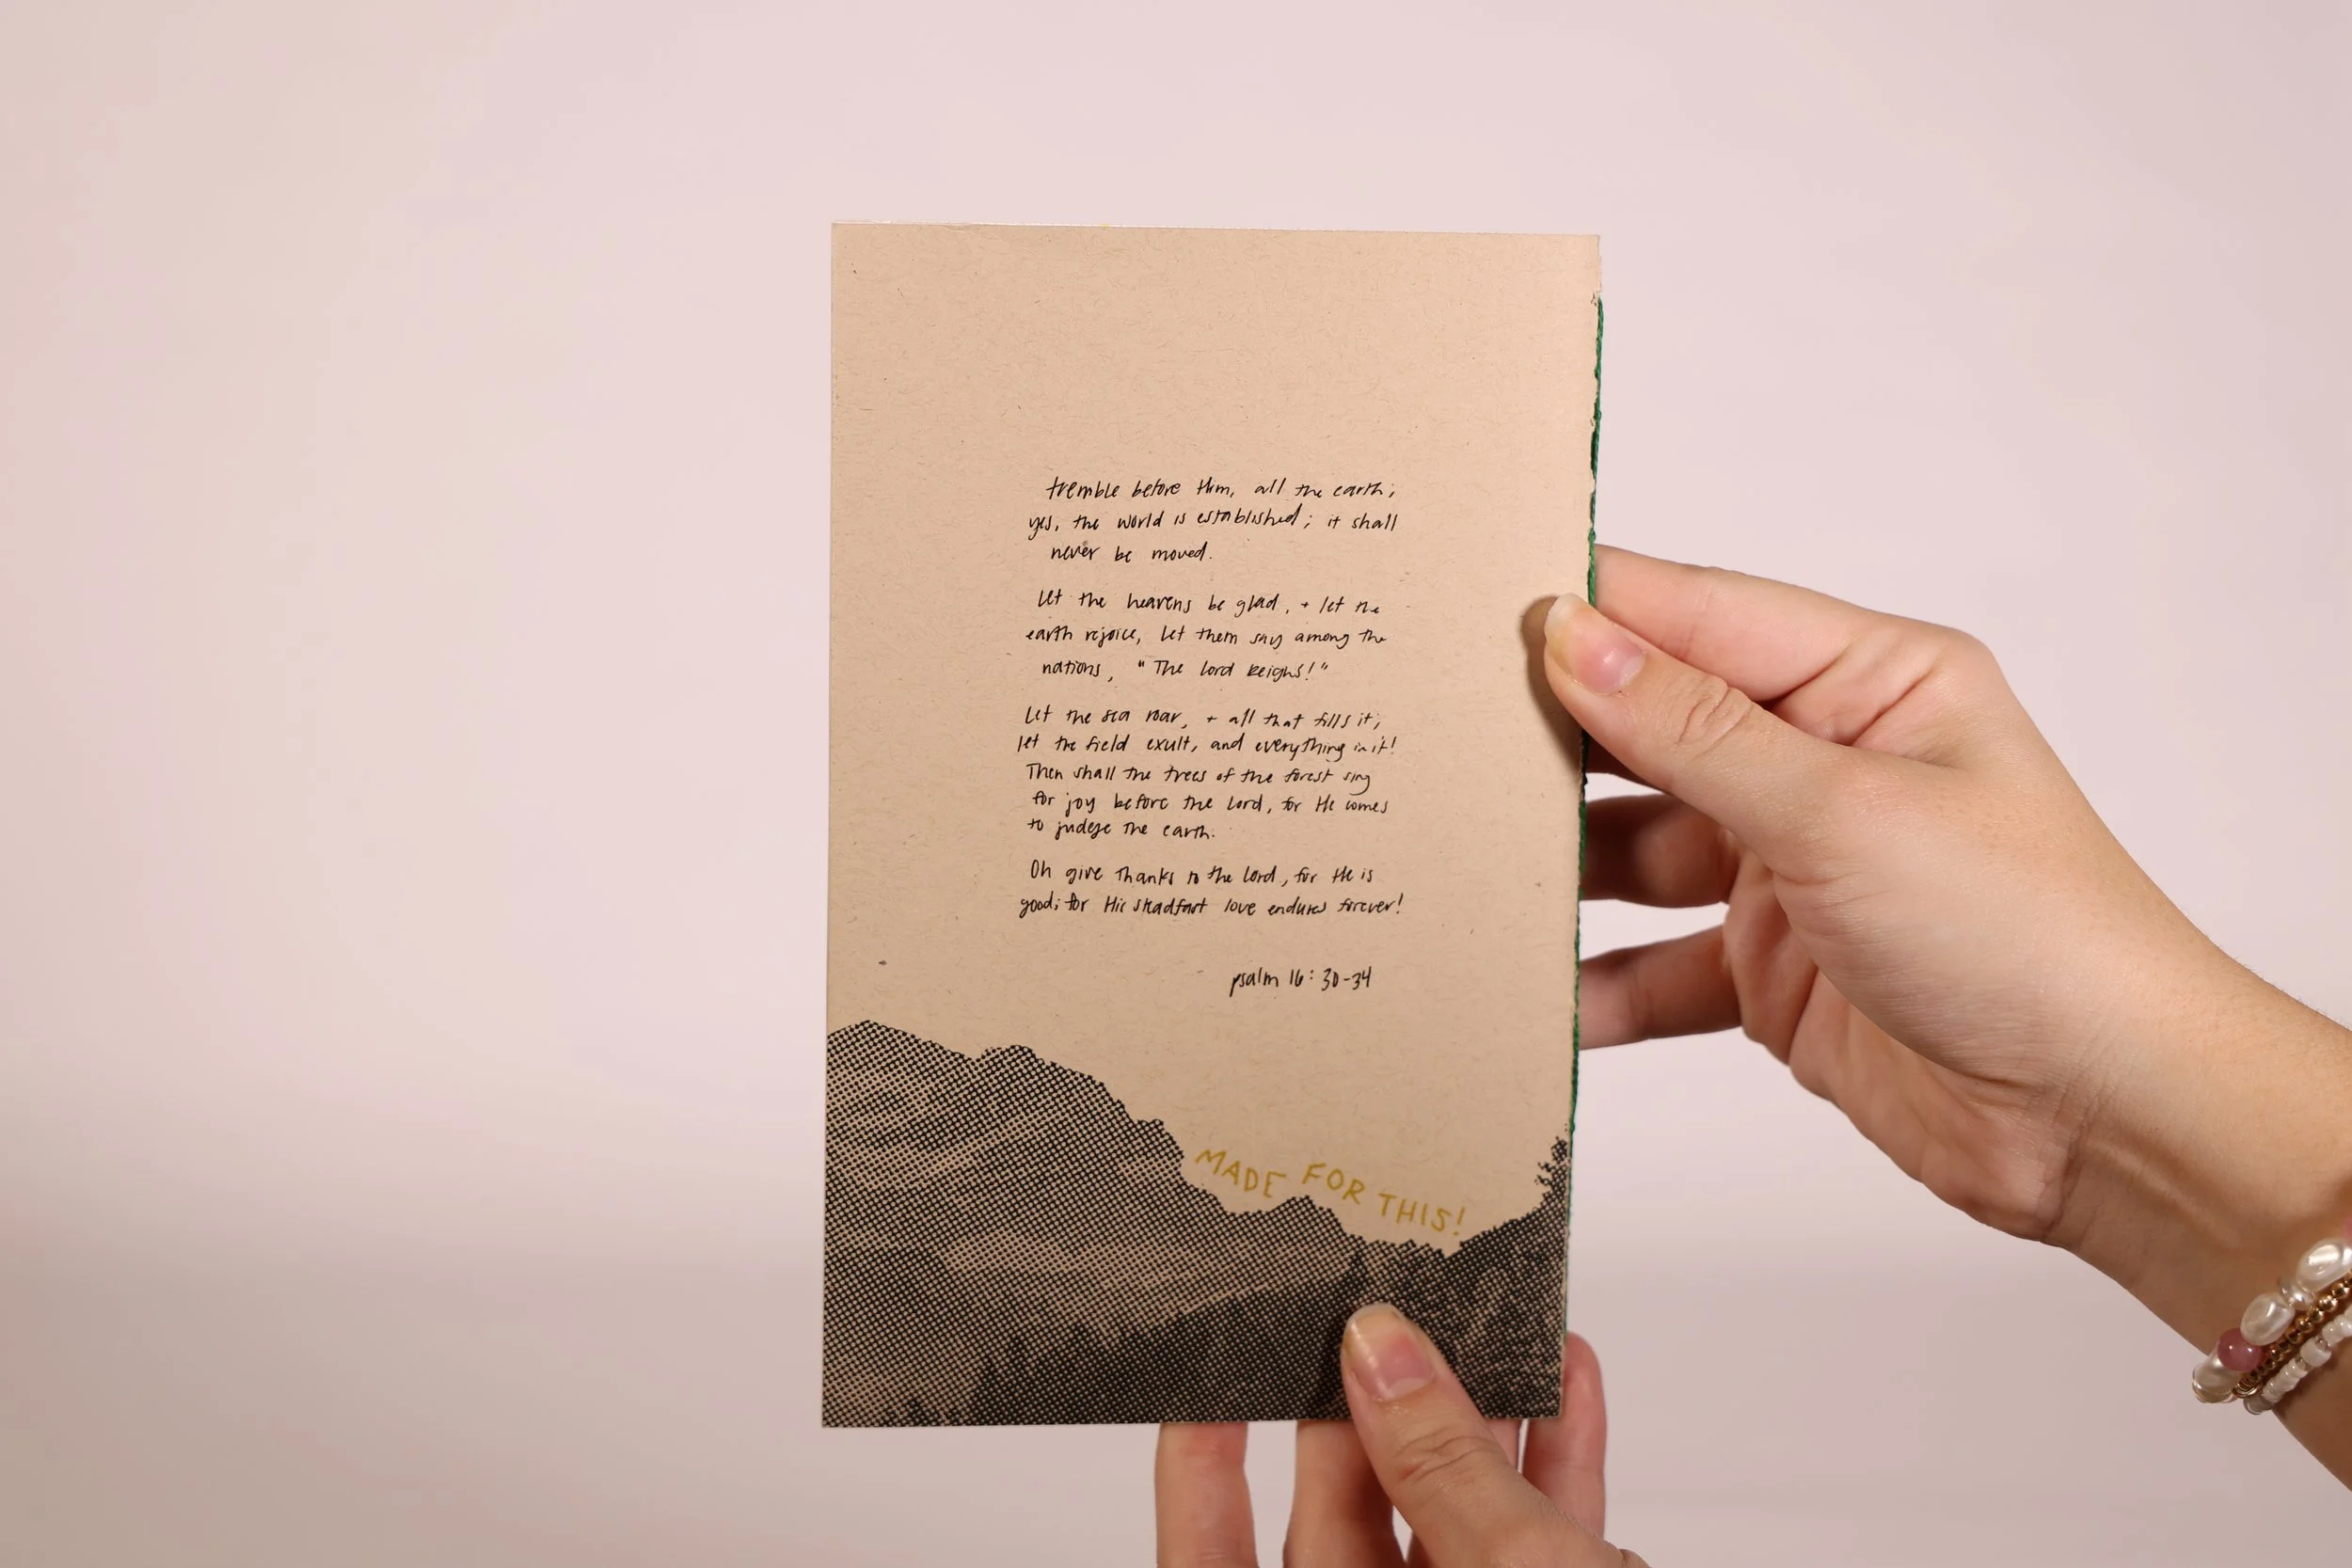 tremble before Him, all the earth;
yes, the world is established; it shall
never be moved.
Let the heavens be glad, + let the
earth rejoice, let them say among the
nations, "The Lord Reigns!"
Let the sea roar, + all that fills it;
let the field exult, and everything in it!
Then shall the trees of the forest sing
for joy before the Lord, for He comes
to judge the earth.
Oh give thanks to the Lord, for He is
good; for His steadfast love endures forever!
psalm 16:30-34
MADE FOR THIS!